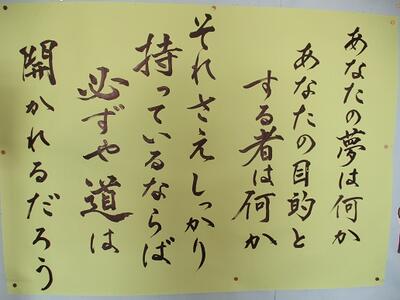 あなたの夢は何か
あなたの目的と
する者は何か
それさえしっかり
持っているならば
必ずや道は
開かれるだろう